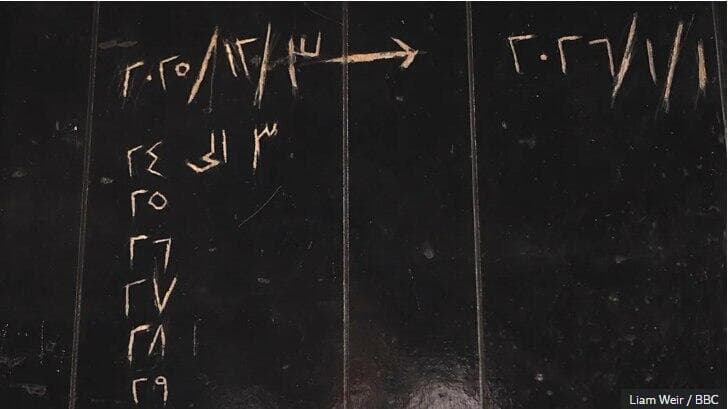 ٢٠٢٥/١٢/٣ → ٢٠٢٦/١/١
٣ الى ٢٤
٢٥
٢٦
٢٧
٢٨
٢٩
Liam Weir / BBC